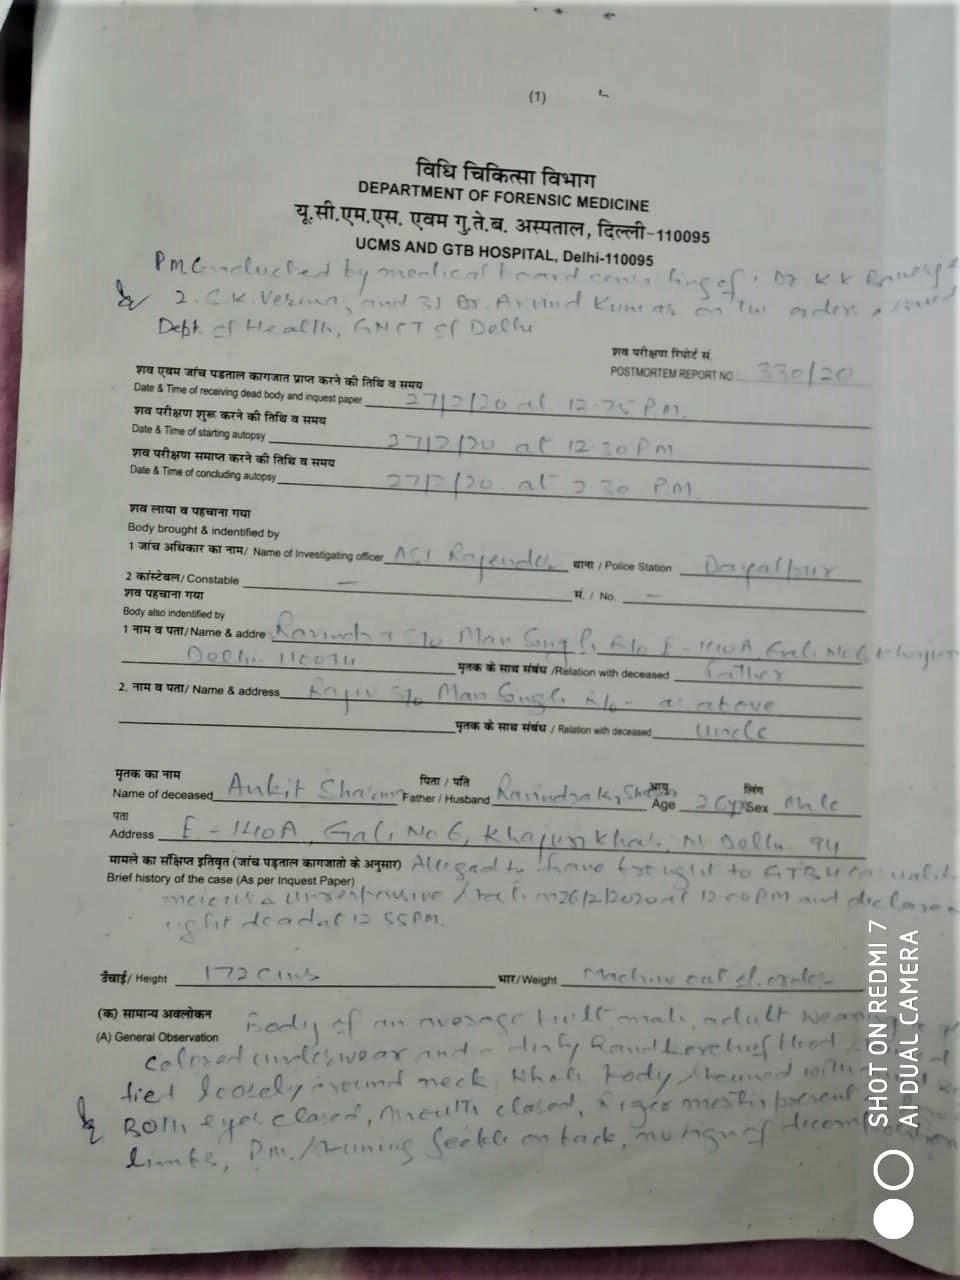 (1)
विधि चिकित्सा विभाग
DEPARTMENT OF FORENSIC MEDICINE
यू.सी.एम.एस. एवम गु.ते.ब. अस्पताल, दिल्ली-110095
UCMS AND GTB HOSPITAL, Delhi-110095
P.M. Conducted by medical board consisting of 1 Dr. K K
2. C.K. Verma, and 3) Dr. Arvind Kumar on the orders issued
Dept. of Health, GNCT of Delhi
शव परीक्षण रिपोर्ट सं.
POSTMORTEM REPORT NO. 330/20
शव एवम जांच पड़ताल कागजात प्राप्त करने की तिथि व समय
Date & Time of receiving dead body and inquest paper 27/2/20 at P.M.
शव परीक्षण शुरू करने की तिथि व समय
Date & Time of starting autopsy 27/2/20 at 12.30 PM
शव परीक्षण समाप्त करने की तिथि व समय
Date & Time of concluding autopsy 27/2/20 at 2 30 P.M.
शव लाया व पहचाना गया
Body brought & indentified by
1 जांच अधिकार का नाम/ Name of Investigating officer ASI Rajender थाना / Police Station Dayalpur
2 कांस्टेबल/ Constable — सं. / No. —
शव पहचाना गया
Body also indentified by
1 नाम व पता/Name & addre Ravinder S/o Man Singh R/o E-140A, Gali No 6 Khajuri
Delhi 110094 मृतक के साथ संबंध /Relation with deceased father
2. नाम व पता/ Name & address Rajiv S/o Man Singh R/o - as above
मृतक के साथ संबंध / Relation with deceased Uncle
मृतक का नाम पिता / पति आयु लिंग
Name of deceased Ankit Sharma Father / Husband Ravindra K. Sharma Age 26 yrs Sex Male
पता
Address E-140A, Gali No 6, Khajuri Khas, N. Delhi 94
मामले का संक्षिप्त इतिवृत (जांच पड़ताल कागजातो के अनुसार) Alleged to have brought to GTBH Casualty
Brief history of the case (As per Inquest Paper)
unresponsive state on 26/2/2020 at PM and declared
dead at 12 55PM.
ऊँचाई/ Height 172 Cms भार/Weight Machine out of order
(क) सामान्य अवलोकन
(A) General Observation Body of an average built male, adult wearing
colored underwear and a dirty handkerchief blood
tied loosely around neck. Whole body stained with
Both eyes closed, mouth closed, Rigor mortis present
limbs, P.M. staining feeble on back, no sign of decomposition
SHOT ON REDMI 7
AI DUAL CAMERA